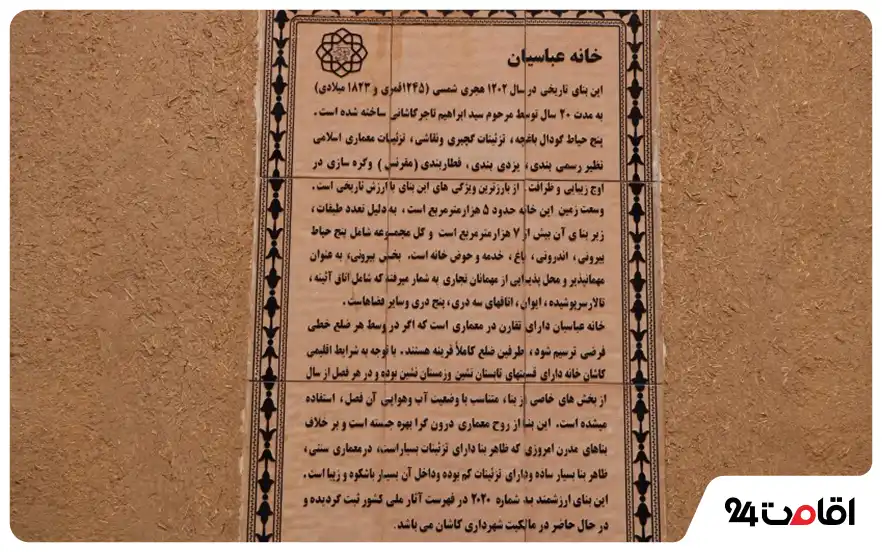 خانه عباسیان
این بنای تاریخی در سال ۱۲۰۲ هجری شمسی (۱۲۴۵قمری و ۱۸۲۳ میلادی)
به مدت ۲۰ سال توسط مرحوم سید ابراهیم تاجرکاشانی ساخته شده است.
پنج حیاط گودال باغچه، تزئینات گچبری ونقاشی، تزئینات معماری اسلامی
نظیر رسمی بندی، یزدی بندی، قطاربندی (مقرنس) وکره سازی در
اوج زیبایی و ظرافت از بارزترین ویژگی های این بنای با ارزش تاریخی است.
وسعت زمین این خانه حدود ۵ هزارمترمربع است، به دلیل تعدد طبقات،
زیر بنا ی آن بیش از ۷ هزارمترمربع است و کل مجموعه شامل پنج حیاط
بیرونی، اندرونی، باغ، خدمه و حوض خانه است. بخش بیرونی، به عنوان
مهمانپذیر و محل پذیرایی از مهمانان تجاری به شمار میرفته که شامل اتاق آئینه،
تالارسرپوشیده، ایوان، اتاقهای سه دری، پنج دری وسایر فضاهاست.
خانه عباسیان دارای تقارن در معماری است که اگر در وسط هر ضلع خطی
فرضی ترسیم شود، طرفین ضلع کاملاً قرینه هستند. با توجه به شرایط اقلیمی
کاشان خانه دارای قسمتهای تابستان نشین وزمستان نشین بوده و در هر فصل از سال
از بخش های خاصی از بنا، متناسب با وضعیت آب وهوایی آن فصل، استفاده
میشده است. این بنا از روح معماری درون گرا بهره جسته است و بر خلاف
بناهای مدرن امروزی که ظاهر بنا دارای تزئینات بسیاراست، درمعماری سنتی،
ظاهر بنا بسیار ساده ودارای تزئینات کم بوده وداخل آن بسیار باشکوه و زیبا است.
این بنای ارزشمند به شماره ۲۰۲۰ در فهرست آثار ملی کشور ثبت گردیده و
در حال حاضر در مالکیت شهرداری کاشان می باشد.
اقامت24